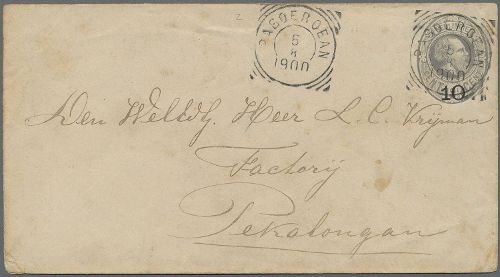 PASOEROEAN
5
8
1900
PASOEROEAN
5
1900
10
Den Weled. Heer L. C. Vrijman
Factorij
Pekalongan